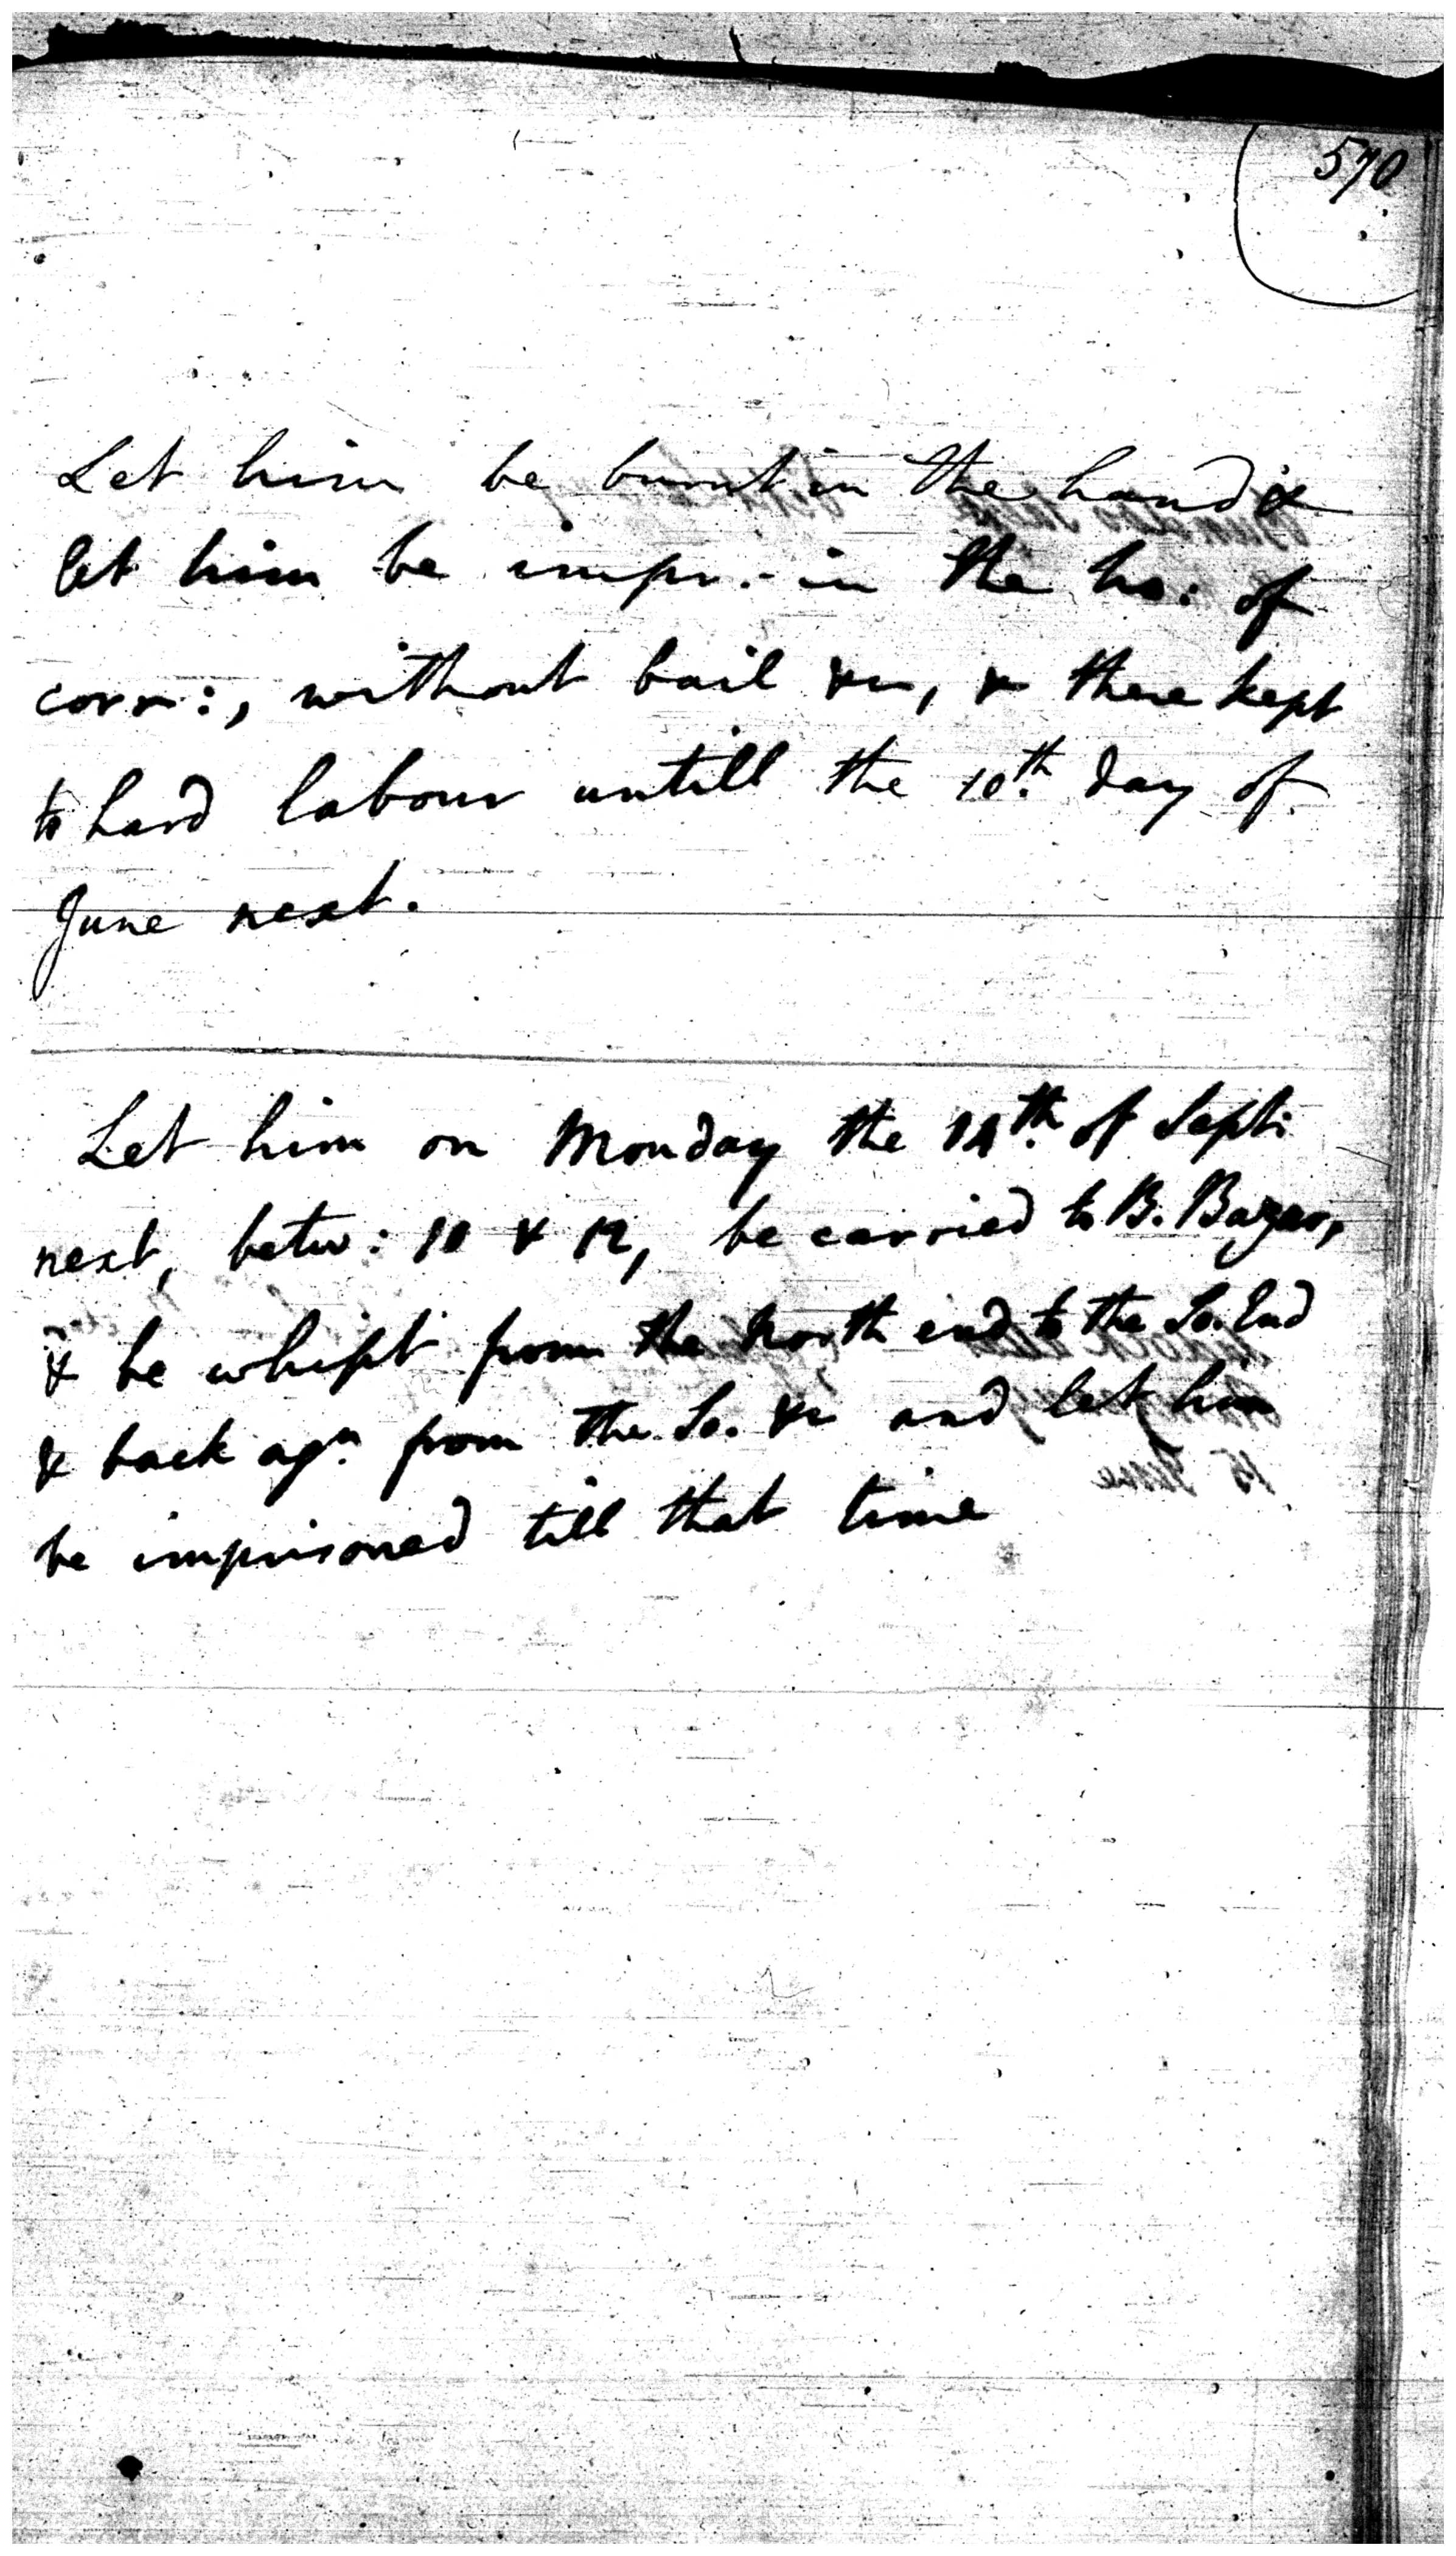 570
Let him be burnt in the hand &
let him be impr. in the ho: of
corr:, without bail &c, & there kept
to hard labour untill the 10th day of
June next.
Let him on Monday the 14th of Sept:
next, betw: 10 & 12, be carried to B. Bazar,
& be whipt from the North end to the So. End
& back agn from the So. &c and let him
be imprisoned till that time